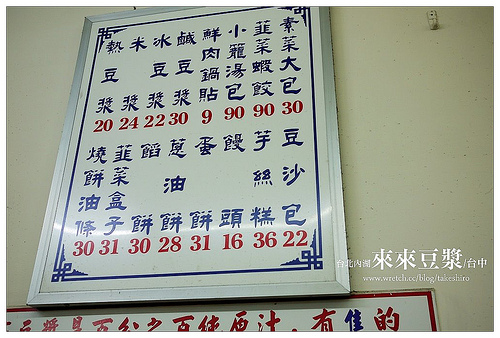 熱豆漿 20
米漿 24
冰豆漿 22
鹹豆漿 30
鮮肉鍋貼 9
小籠湯包 90
韮菜蝦餃 90
素菜大包 30
燒餅油條 30
韮菜盒子 31
餡餅 30
蔥油餅 28
蛋餅 31
饅頭 16
芋絲糕 36
豆沙包 22
台北內湖 來來豆漿/台中
www.wretch.cc/blog/takeshiro
豆漿是百分之百純原汁．有售的